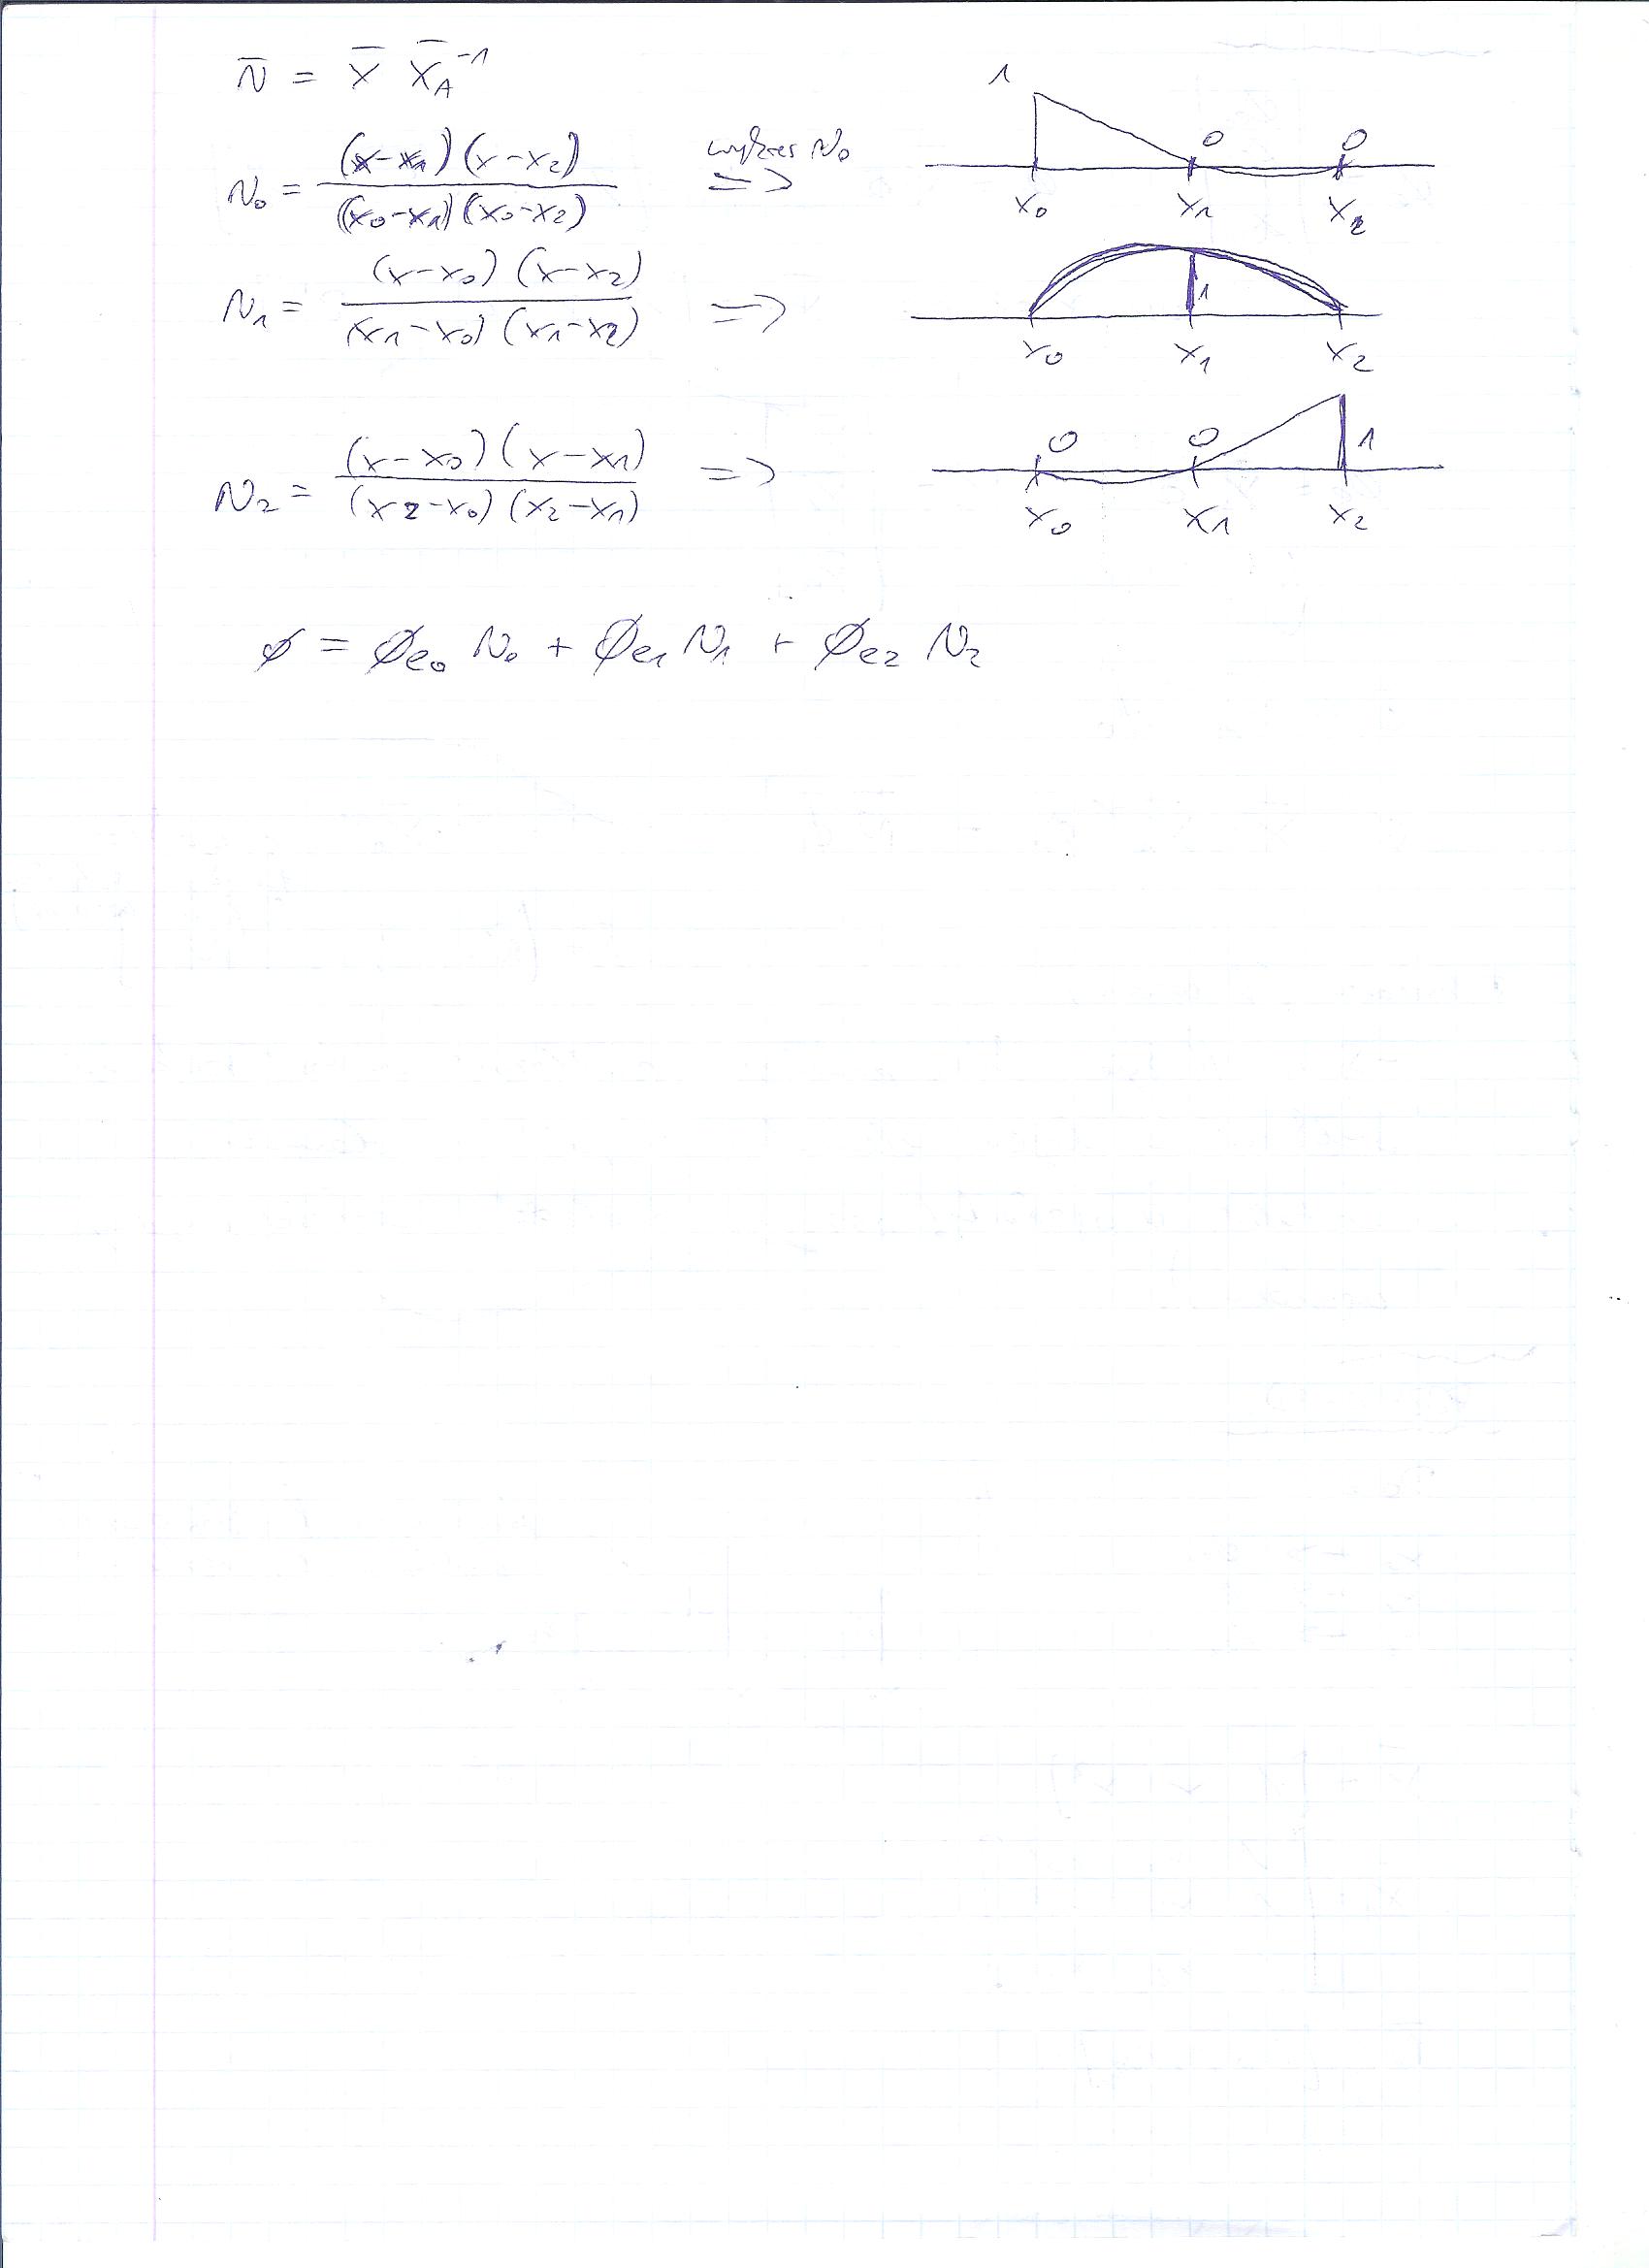 N̅ = X̅ X̅_A⁻¹
N₀ = (x-x₁)(x-x₂) / (x₀-x₁)(x₀-x₂) wykres N₀ => 1 0 0 x₀ x₁ x₂
N₁ = (x-x₀)(x-x₂) / (x₁-x₀)(x₁-x₂) => 1 x₀ x₁ x₂
N₂ = (x-x₀)(x-x₁) / (x₂-x₀)(x₂-x₁) => 0 0 1 x₀ x₁ x₂
φ = φe₀ N₀ + φe₁ N₁ + φe₂ N₂